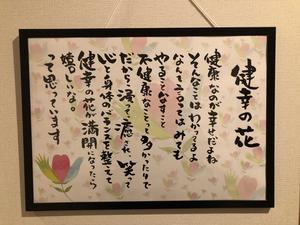 健幸の花
健康なのが幸せだよね
そんなことはわかってるよ
なんて言ってはみても
やることなすこと
不健康なことっと多かったりで
だから浸って癒され、笑って
心と身体のバランスを整えて
健幸の花が満開になったら
嬉しいな。
って思っています